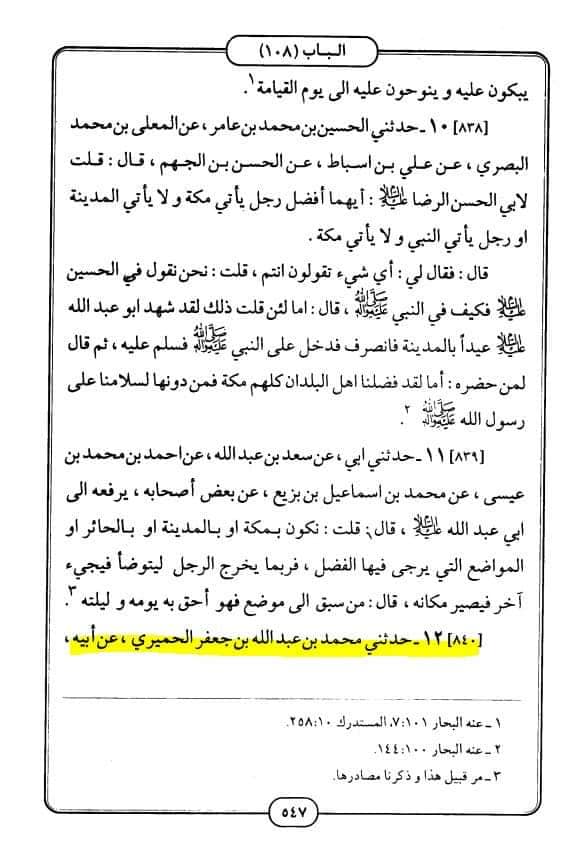 الباب (١٠٨)
يبكون عليه و ينوحون عليه الى يوم القيامة١.
[٨٣٨] ١٠ ـ حدثني الحسين بن محمد بن عامر ، عن المعلى بن محمد
البصري ، عن علي بن اسباط ، عن الحسن بن الجهم ، قال : قلت
لابي الحسن الرضا عليه السلام : أيهما أفضل رجل يأتي مكة و لا يأتي المدينة
او رجل يأتي النبي و لا يأتي مكة .
قال : فقال لي : أي شيء تقولون انتم ، قلت : نحن نقول في الحسين
عليه السلام فكيف في النبي صلى الله عليه وآله ، قال : اما لئن قلت ذلك لقد شهد ابو عبد الله
عليه السلام عيداً بالمدينة فانصرف فدخل على النبي صلى الله عليه وآله فسلم عليه ، ثم قال
لمن حضره : أما لقد فضلنا اهل البلدان كلهم مكة فمن دونها لسلامنا على
رسول الله صلى الله عليه وآله ٢.
[٨٣٩] ١١ ـ حدثني ابي ، عن سعد بن عبد الله ، عن احمد بن محمد بن
عيسى ، عن محمد بن اسماعيل بن بزيع ، عن بعض أصحابه ، يرفعه الى
ابي عبد الله عليه السلام ، قال : قلت : نكون بمكة او بالمدينة او بالحائر او
المواضع التي يرجى فيها الفضل ، فربما يخرج الرجل ليتوضأ فيجيء
آخر فيصير مكانه ، قال : من سبق الى موضع فهو أحق به يومه و ليلته ٣.
[٨٤٠] ١٢ ـ حدثني محمد بن عبد الله بن جعفر الحميري ، عن أبيه ،
١ ـ عنه البحار ١٠١:٧، المستدرك ١٠:٢٥٨.
٢ ـ عنه البحار ١٠٠:١٤٤.
٣ ـ مر قبيل هذا و ذكرنا مصادرها.
٥٤٧